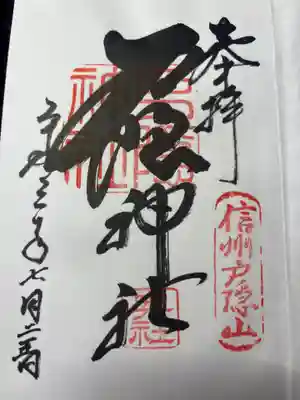 奉拝
信州戸隠山
戸隠神社
戸隠神社
令和三年七月二